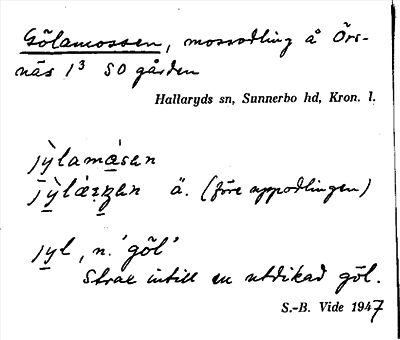 Gölamossen, mossodling å Örs-
näs 1³ SO gården
Hallaryds sn, Sunnerbo hd, Kron. l.
jỳlamåsan
jỳlæŋan ä. (före uppodlingen)
jyl, n. 'göl'
Strax intill en utdikad göl.
S.-B. Vide 1947